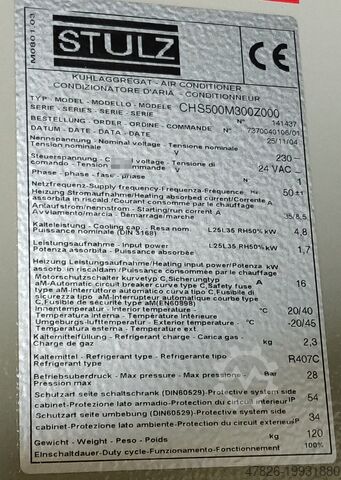 M0801.03
STULZ
CE
KUHLAGGREGAT - AIR CONDITIONER
CONDIZIONATORE D'ARIA - CONDITIONNEUR
TYP - MODEL - MODELLO - MODELE CHS500M300Z000
SERIE - SERIES - SERIE - SERIE N° 141437
BESTELLUNG - ORDER - ORDINE - COMMANDE N° 7370040106/01
DATUM - DATE - DATA - DATE 25/11/04
Nennspannung - Nominal voltage - Tensione nominale
Tension nominale V 230
Steuerspannung - C voltage - Tensione di
comando - Tension commande V 24 VAC
Phase - phase - fase - phase 1
Netzfrequenz-Supply frequency-Frequenza-Fréquence Hz 50
Heizung Stromaufnahme/Heating absorbed current/Corrente A
assorbita in riscald/Courant consommé par le chauffage
Anlaufstrom/nennstrom - Starting/run current A
Avviamento/marcia - Démarrage/marche 35/8,5
Kälteleistung - Cooling cap - Resa nom L25L35 RH50% kW 4,8
Puissance nominale (DIN 3168)
Leistungsaufnahme - Input power L25L35 RH50% kW 1,7
Potenza assorbita - Puissance absorbée
Heizung Leistungsaufnahme/Heating input power/Potenza kW
assorb in riscaldam /Puissance consommée par le chauffage
Motorschutzschalter kurvetyp C,Sicherungtyp A 16
aM-Automatic circuit breaker curve type C,Safety fuse
type aM-Interruttore automatico curva tipo C,Fusibile di
sicurezza tipo aM-Interrupteur automatique courbe type
C,Fusible de sécurité type aM(EN60998)
Innentemperatur - Internal temperature °C 20/40
Temperatura interna - Température intérieure
Umgebungs-lufttemperatur - Exterior temperature °C -20/45
Temperatura esterna - Température ext.
Kältemittelfüllung - Refrigerant charge - Carica gas kg 2,3
Charge de gaz
Kältemittel - Refrigerant type - Refrigerante tipo R407C
Refrigerant type
Betriebsüberdruck - Max pressure - Pressione max - Bar 28
Pression max
Schutzart seite schaltschrank (DIN60529)-Protective system side
cabinet-Protezione lato armadio-Protection du circuit interieur IP 54
Schutzart seite umbebung (DIN60529)-Protective system side
cabinet-Protezione lato ambiente-Protection du circuit exterieur IP 34
Gewicht - Weight - Peso - Poids kg 120
Einschaltdauer-Duty cycle-Funzionamento-Fonctionnement 100%
47826-19931880